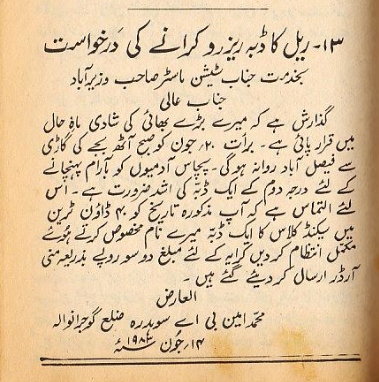 ۱۳- ریل کا ڈبہ ریزرو کرانے کی درخواست
بخدمت جناب سٹیشن ماسٹر صاحب وزیرآباد
جناب عالی
گذارش ہے کہ میرے بڑے بھائی کی شادی ماہ حال
میں قرار پائی ہے۔ برات ۲۰؍ جون کو صبح آٹھ بجے کی گاڑی
سے فیصل آباد روانہ ہوگی۔ پچاس آدمیوں کو بآرام پہنچانے
کے لئے درجہ دوم کے ایک ڈبّہ کی اشد ضرورت ہے۔ اس
لئے التماس ہے کہ آپ مذکورہ تاریخ کو ۴۰ ڈاؤن ٹرین
میں سیکنڈ کلاس کا ایک ڈبّہ میرے نام مخصوص کرتے ہوئے
مکمل انتظام کر دیں کرایہ کے لئے مبلغ دو سو روپے بذریعہ منی
آرڈر ارسال کر دیئے گئے ہیں۔
العارض
محمد امین بی اے سوہدرہ ضلع گوجرانوالہ
۱۴؍ جون ۱۹۸۳ء